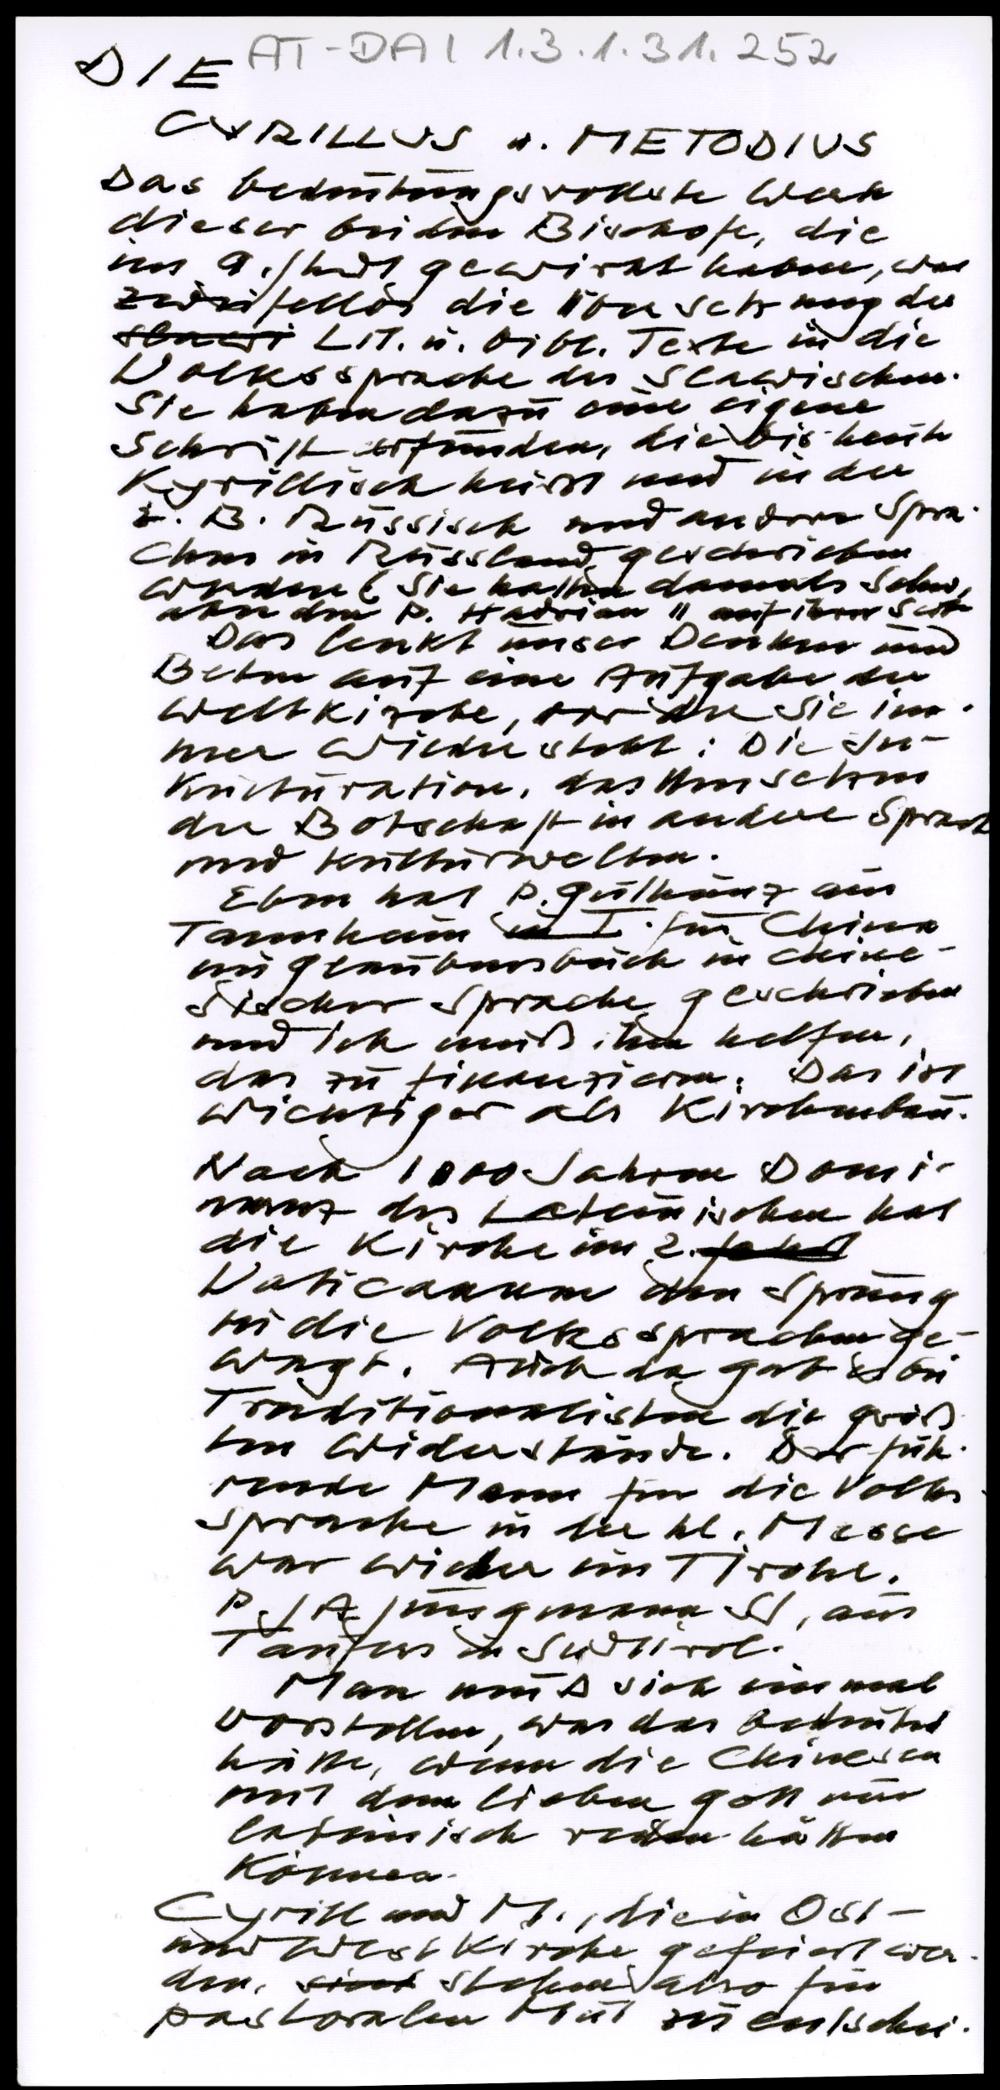 AT-DAI 1.3.1.31.252
DIE
CYRILLUS u. METODIUS
Das bedeutungsvollste Werk
dieser beiden Bischöfe, die
im 9. Jhdt gewirkt haben, war
zweifellos die Übersetzung der
slawi Lit. u. bibl. Texte in die
Volkssprache der Slawischen.
Sie haben dazu eine eigene
Schrift erfunden, die bis heute
Kyrillisch heisst und in der
z. B. Russisch und andere Spra-
chen in Russland geschrieben
werden (Sie hatten damals schon,
aber den P. Hadrian II auf ihrer Seite
Das lenkt unser Denken und
Beten auf eine Aufgabe der
Weltkirche, vor der sie im-
mer wieder steht: Die In-
kulturation, das Umsetzen
der Botschaft in andere Sprach
und Kulturwelten.
Eben hat P. Gutheinz aus
Tannheim in T. für China
ein Glaubensbuch in chine-
sischer Sprache geschrieben
und ich muß ihm helfen,
das zu finanzieren. Das ist
wichtiger als Kirchenbau.
Nach 1000 Jahren Domi-
nanz des Lateinischen hat
die Kirche im 2.
Vaticanum den Sprung
in die Volkssprachen ge-
wagt. Auch da gab es bei
Traditionalisten die größ
ten Widerstände. Der füh-
rende Mann für die Volks
sprache in der hl. Messe
war wieder ein Tiroler.
P. J A Jungmann SJ, aus
Taufers in Südtirol.
Man muß sich einmal
vorstellen, was das bedeutet
hätte, wenn die Chinesen
mit dem lieben Gott nur
lateinisch reden hätten
können.
Cyrill und M., die in Ost-
und Westkirche gefeiert wer-
den, sind stehen also für
pastoralen Mut zu entschei-